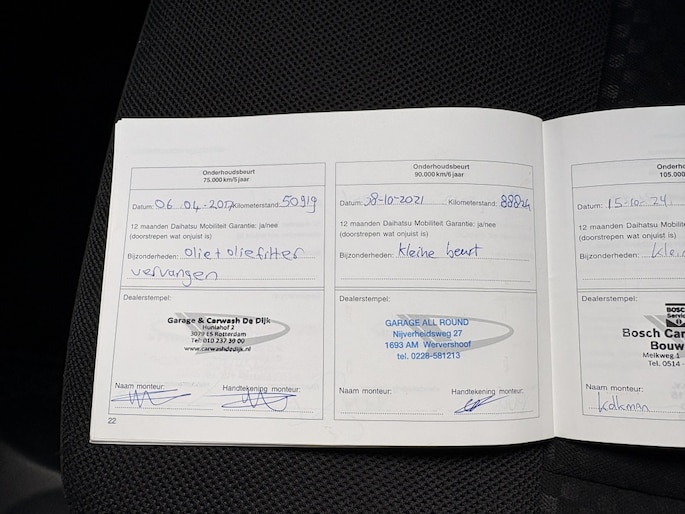 Onderhoudsbeurt
75.000 km/5 jaar
Datum: 06 04-2017 Kilometerstand: 50919
12 maanden Daihatsu Mobiliteit Garantie: ja/nee
(doorstrepen wat onjuist is)
Bijzonderheden: olie + oliefilter
vervangen
Dealerstempel:
Garage & Carwash De Dijk
Huniahof 2
3079 ES Rotterdam
Tel: 010 237 39 00
www.carwashdedijk.nl
Naam monteur: Handtekening monteur:
22
Onderhoudsbeurt
90.000 km/6 jaar
Datum: 08-10-2021 Kilometerstand: 88824
12 maanden Daihatsu Mobiliteit Garantie: ja/nee
(doorstrepen wat onjuist is)
Bijzonderheden: kleine beurt
Dealerstempel:
GARAGE ALL ROUND
Nijverheidsweg 27
1693 AM Wervershoof
tel. 0228-581213
Naam monteur: Handtekening monteur:
Onderho
105.000
Datum: 15-10-24
12 maanden Daihatsu Mobil
(doorstrepen wat onjuist is)
Bijzonderheden: Klei
Dealerstempel:
BOSCH
Service
Bosch Car
Bouw
Melkweg 1
Tel. 0514
Naam monteur:
Kolkman